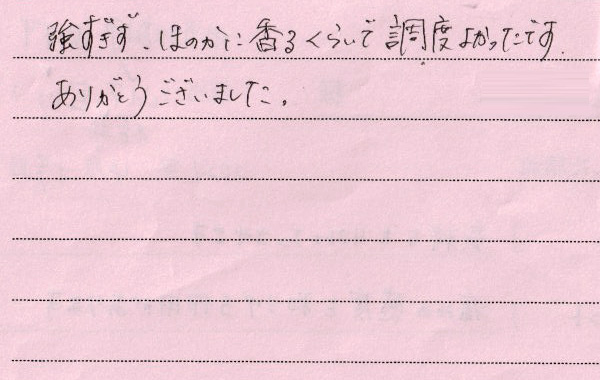 強すぎず、ほのかに香るくらいで調度よかったです.
ありがとうございました。